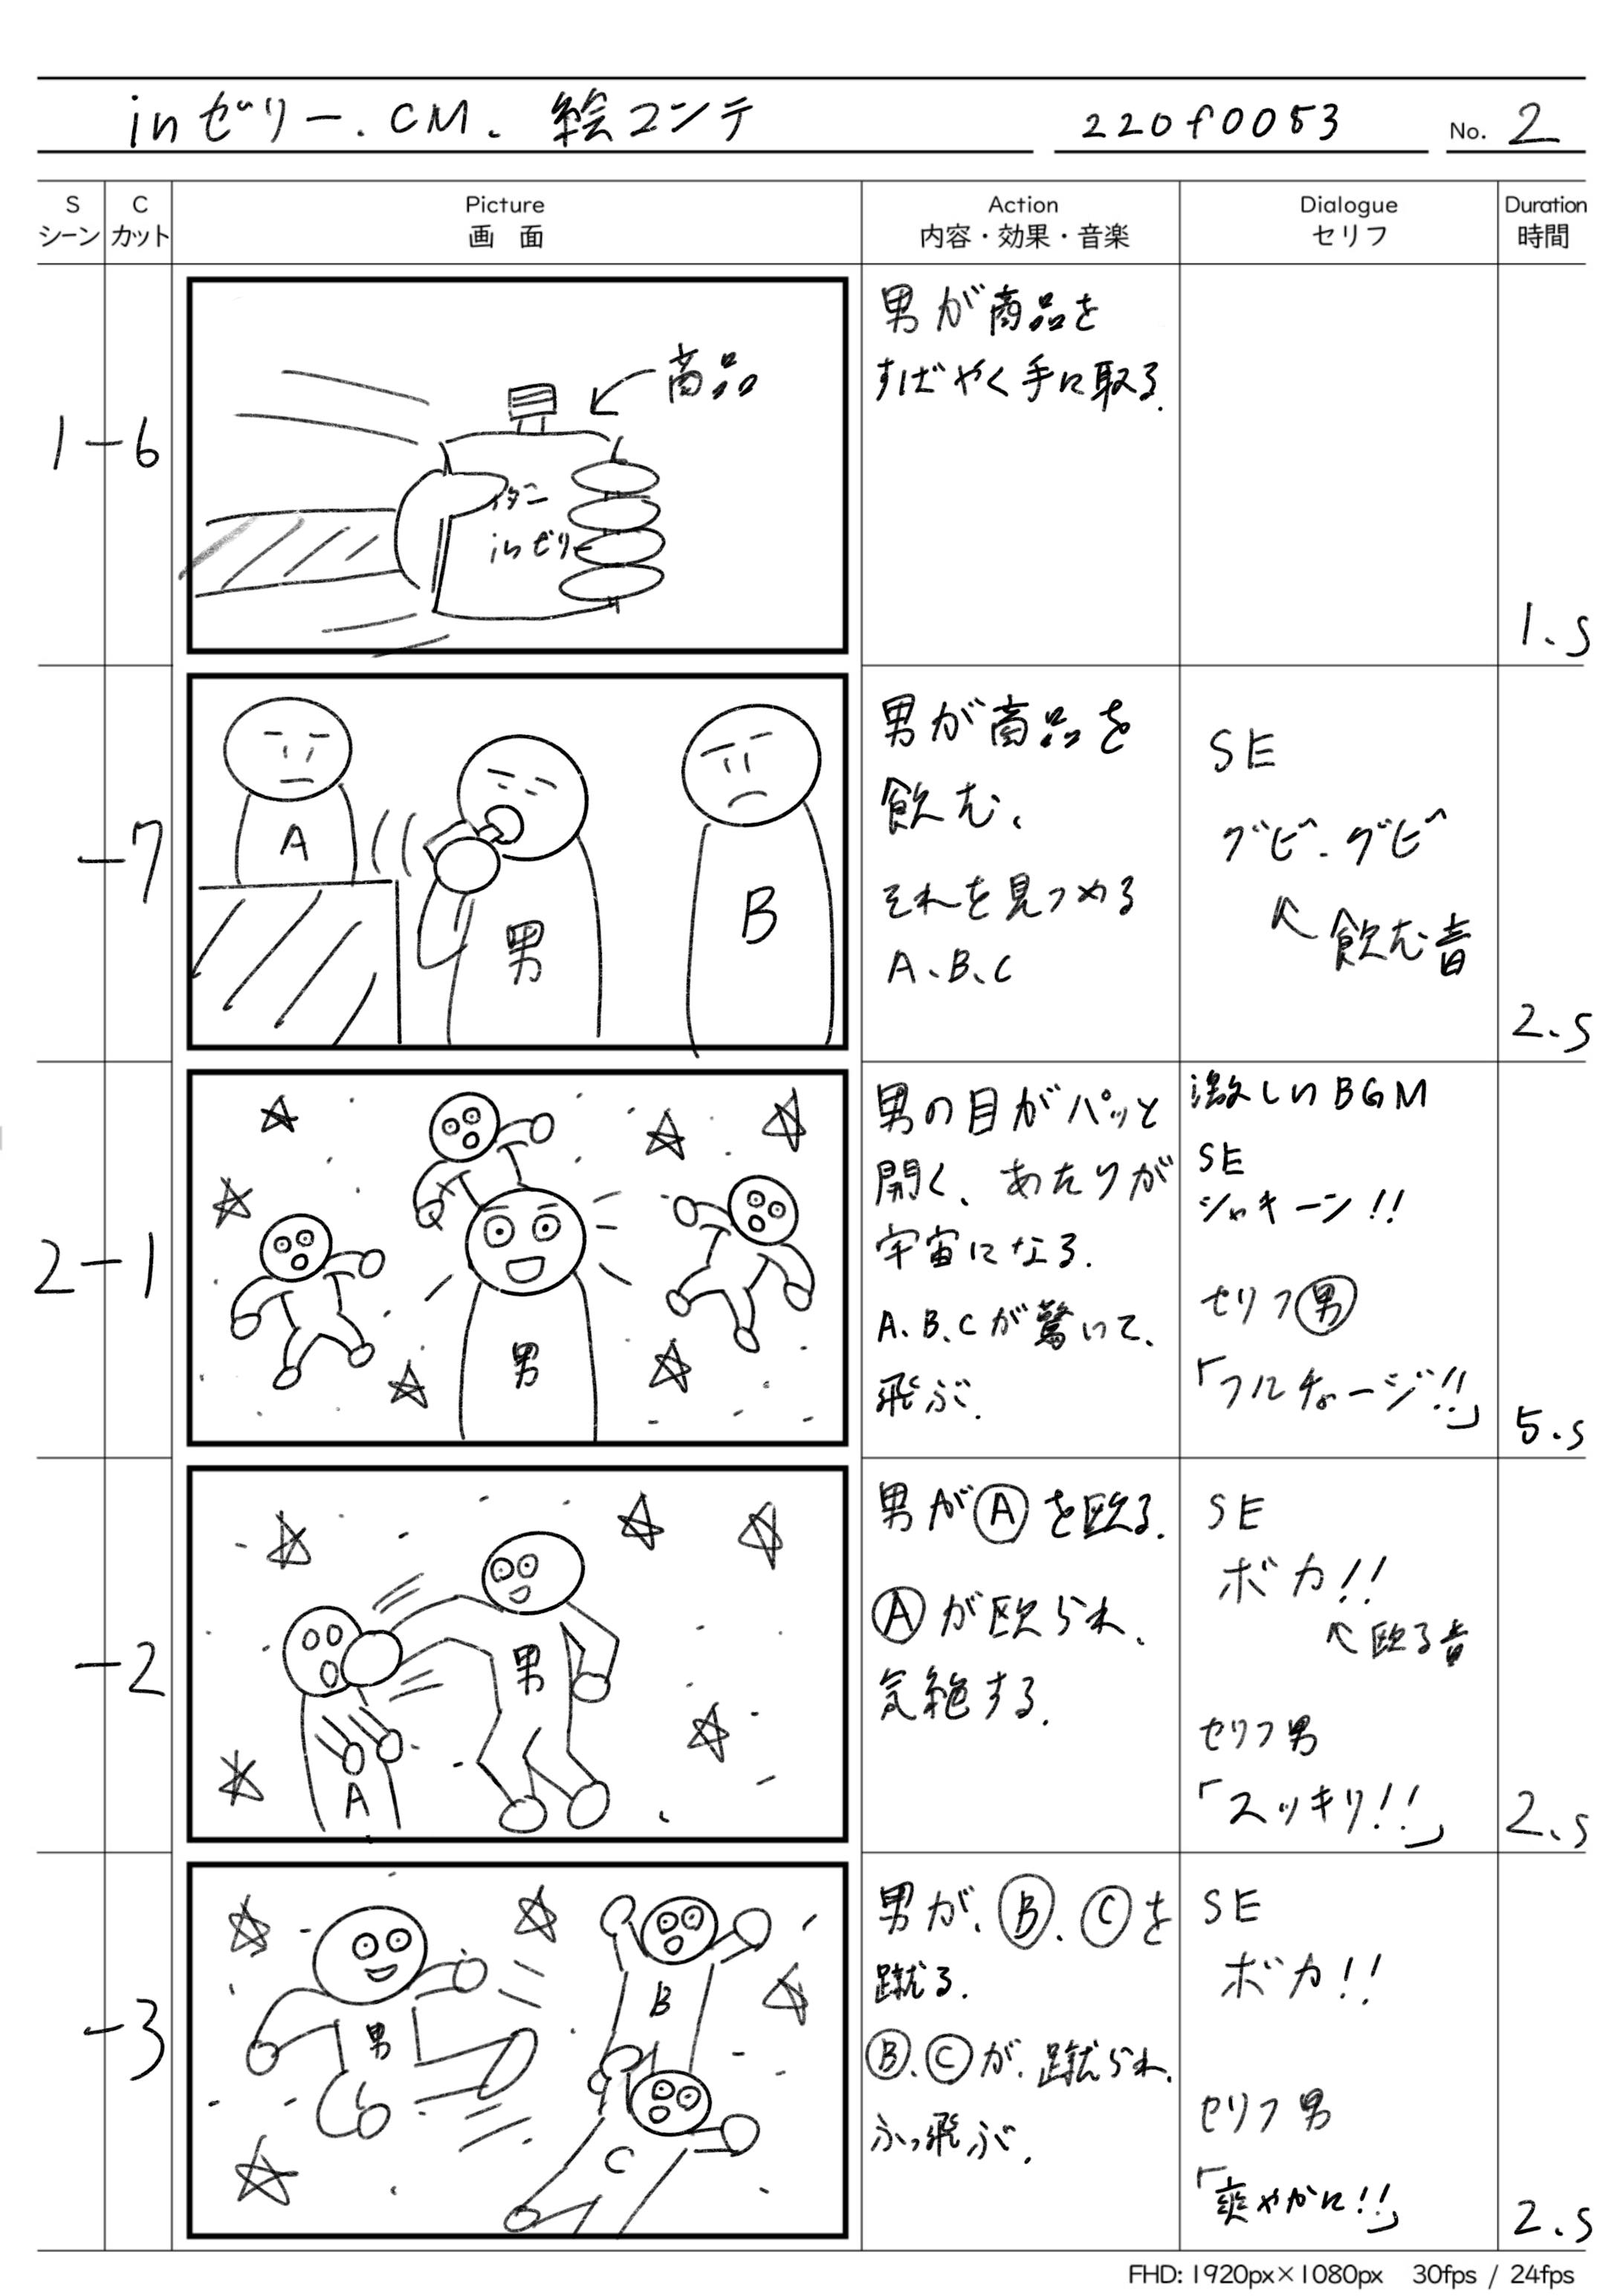 inゼリー.CM.絵コンテ
220f0053
No. 2
S
シーン
C
カット
Picture
画 面
Action
内容・効果・音楽
Dialogue
セリフ
Duration
時間
1-6
商品
inゼリー
男が商品を
すばやく手に取る.
1.s
-7
A
男
B
男が商品を
飲む、
それを見つめる
A、B、C
SE
グビ.グビ
飲む音
2.s
2-1
男
男の目がパッと
開く、あたりが
宇宙になる.
A.B.Cが驚いて、
飛ぶ.
激しいBGM
SE
シャキーン!!
セリフ男
「フルチャージ!!」
5.s
-2
男
A
男がAを殴る.
Aが殴られ、
気絶する.
SE
ボカ!!
殴る音
セリフ男
「スッキリ!!」
2.s
-3
男
B
C
男が、B、Cを
蹴る.
B、Cが、蹴られ、
ふっ飛ぶ.
SE
ボカ!!
セリフ男
「爽やかに!!」
2.s
FHD: 1920px×1080px 30fps / 24fps